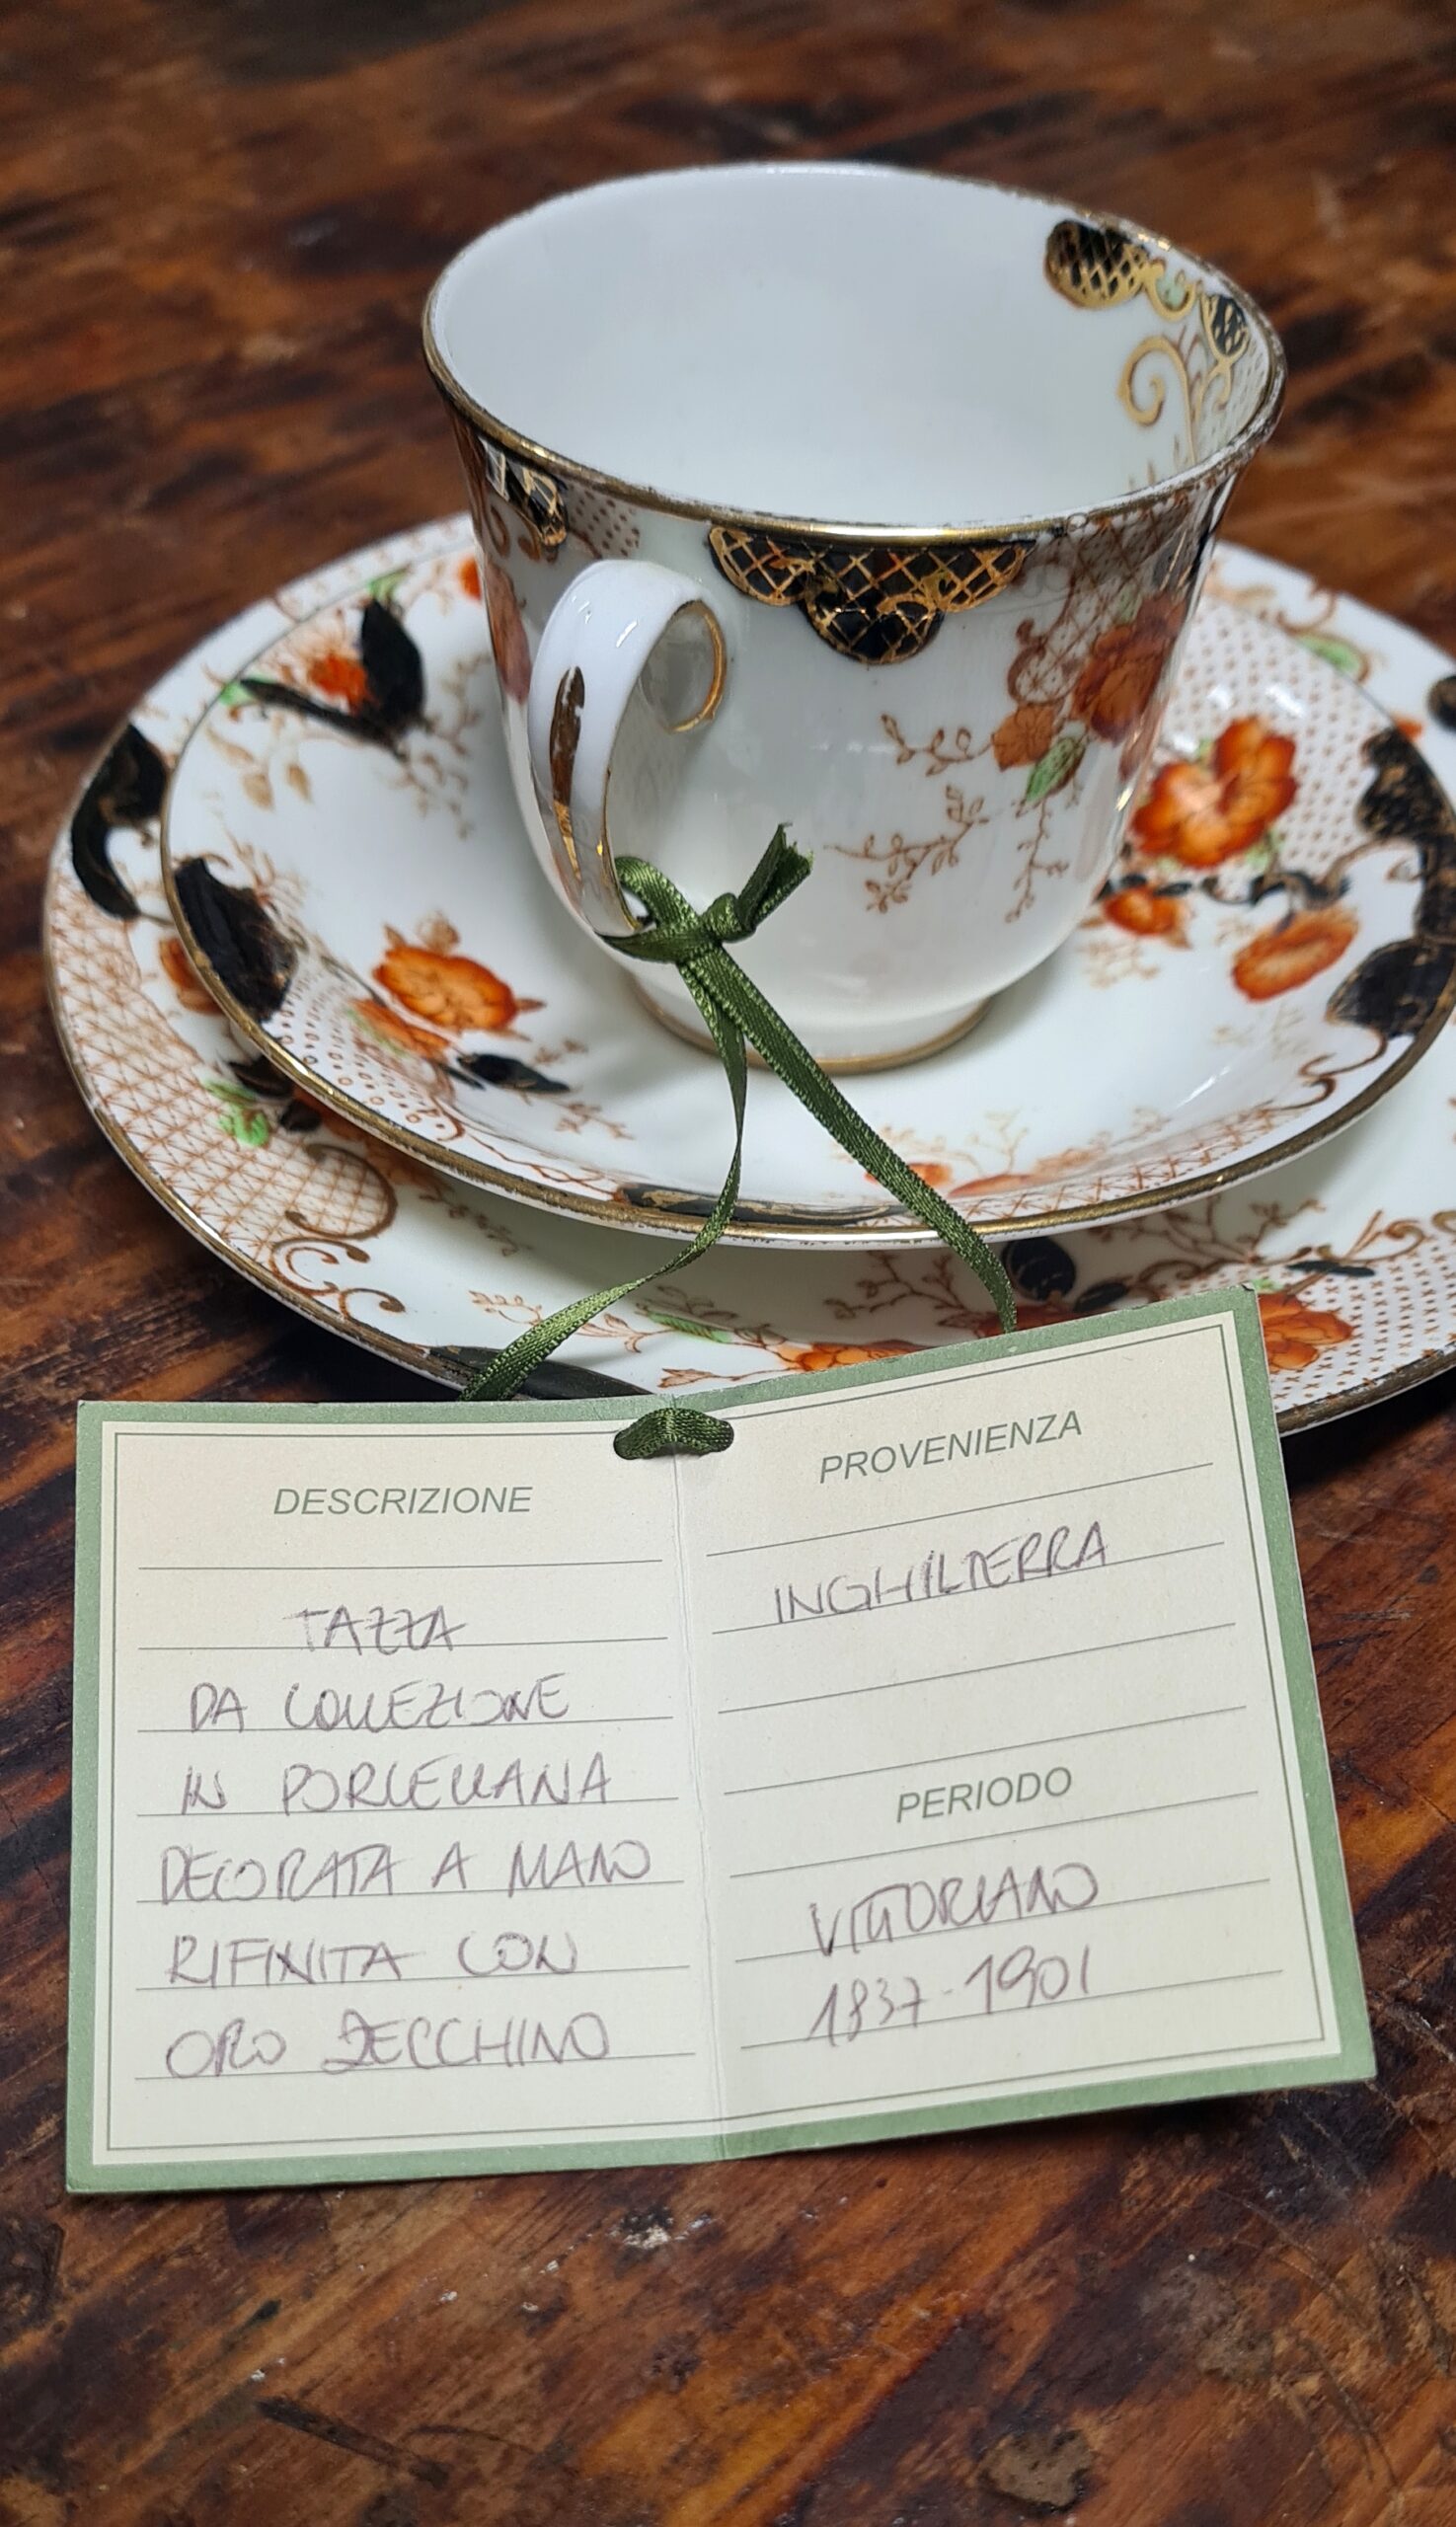 DESCRIZIONE
TAZZA
DA COLLEZIONE
IN PORCELLANA
DECORATA A MANO
RIFINITA CON
ORO ZECCHINO
PROVENIENZA
INGHILTERRA
PERIODO
VITTORIANO
1837-1901